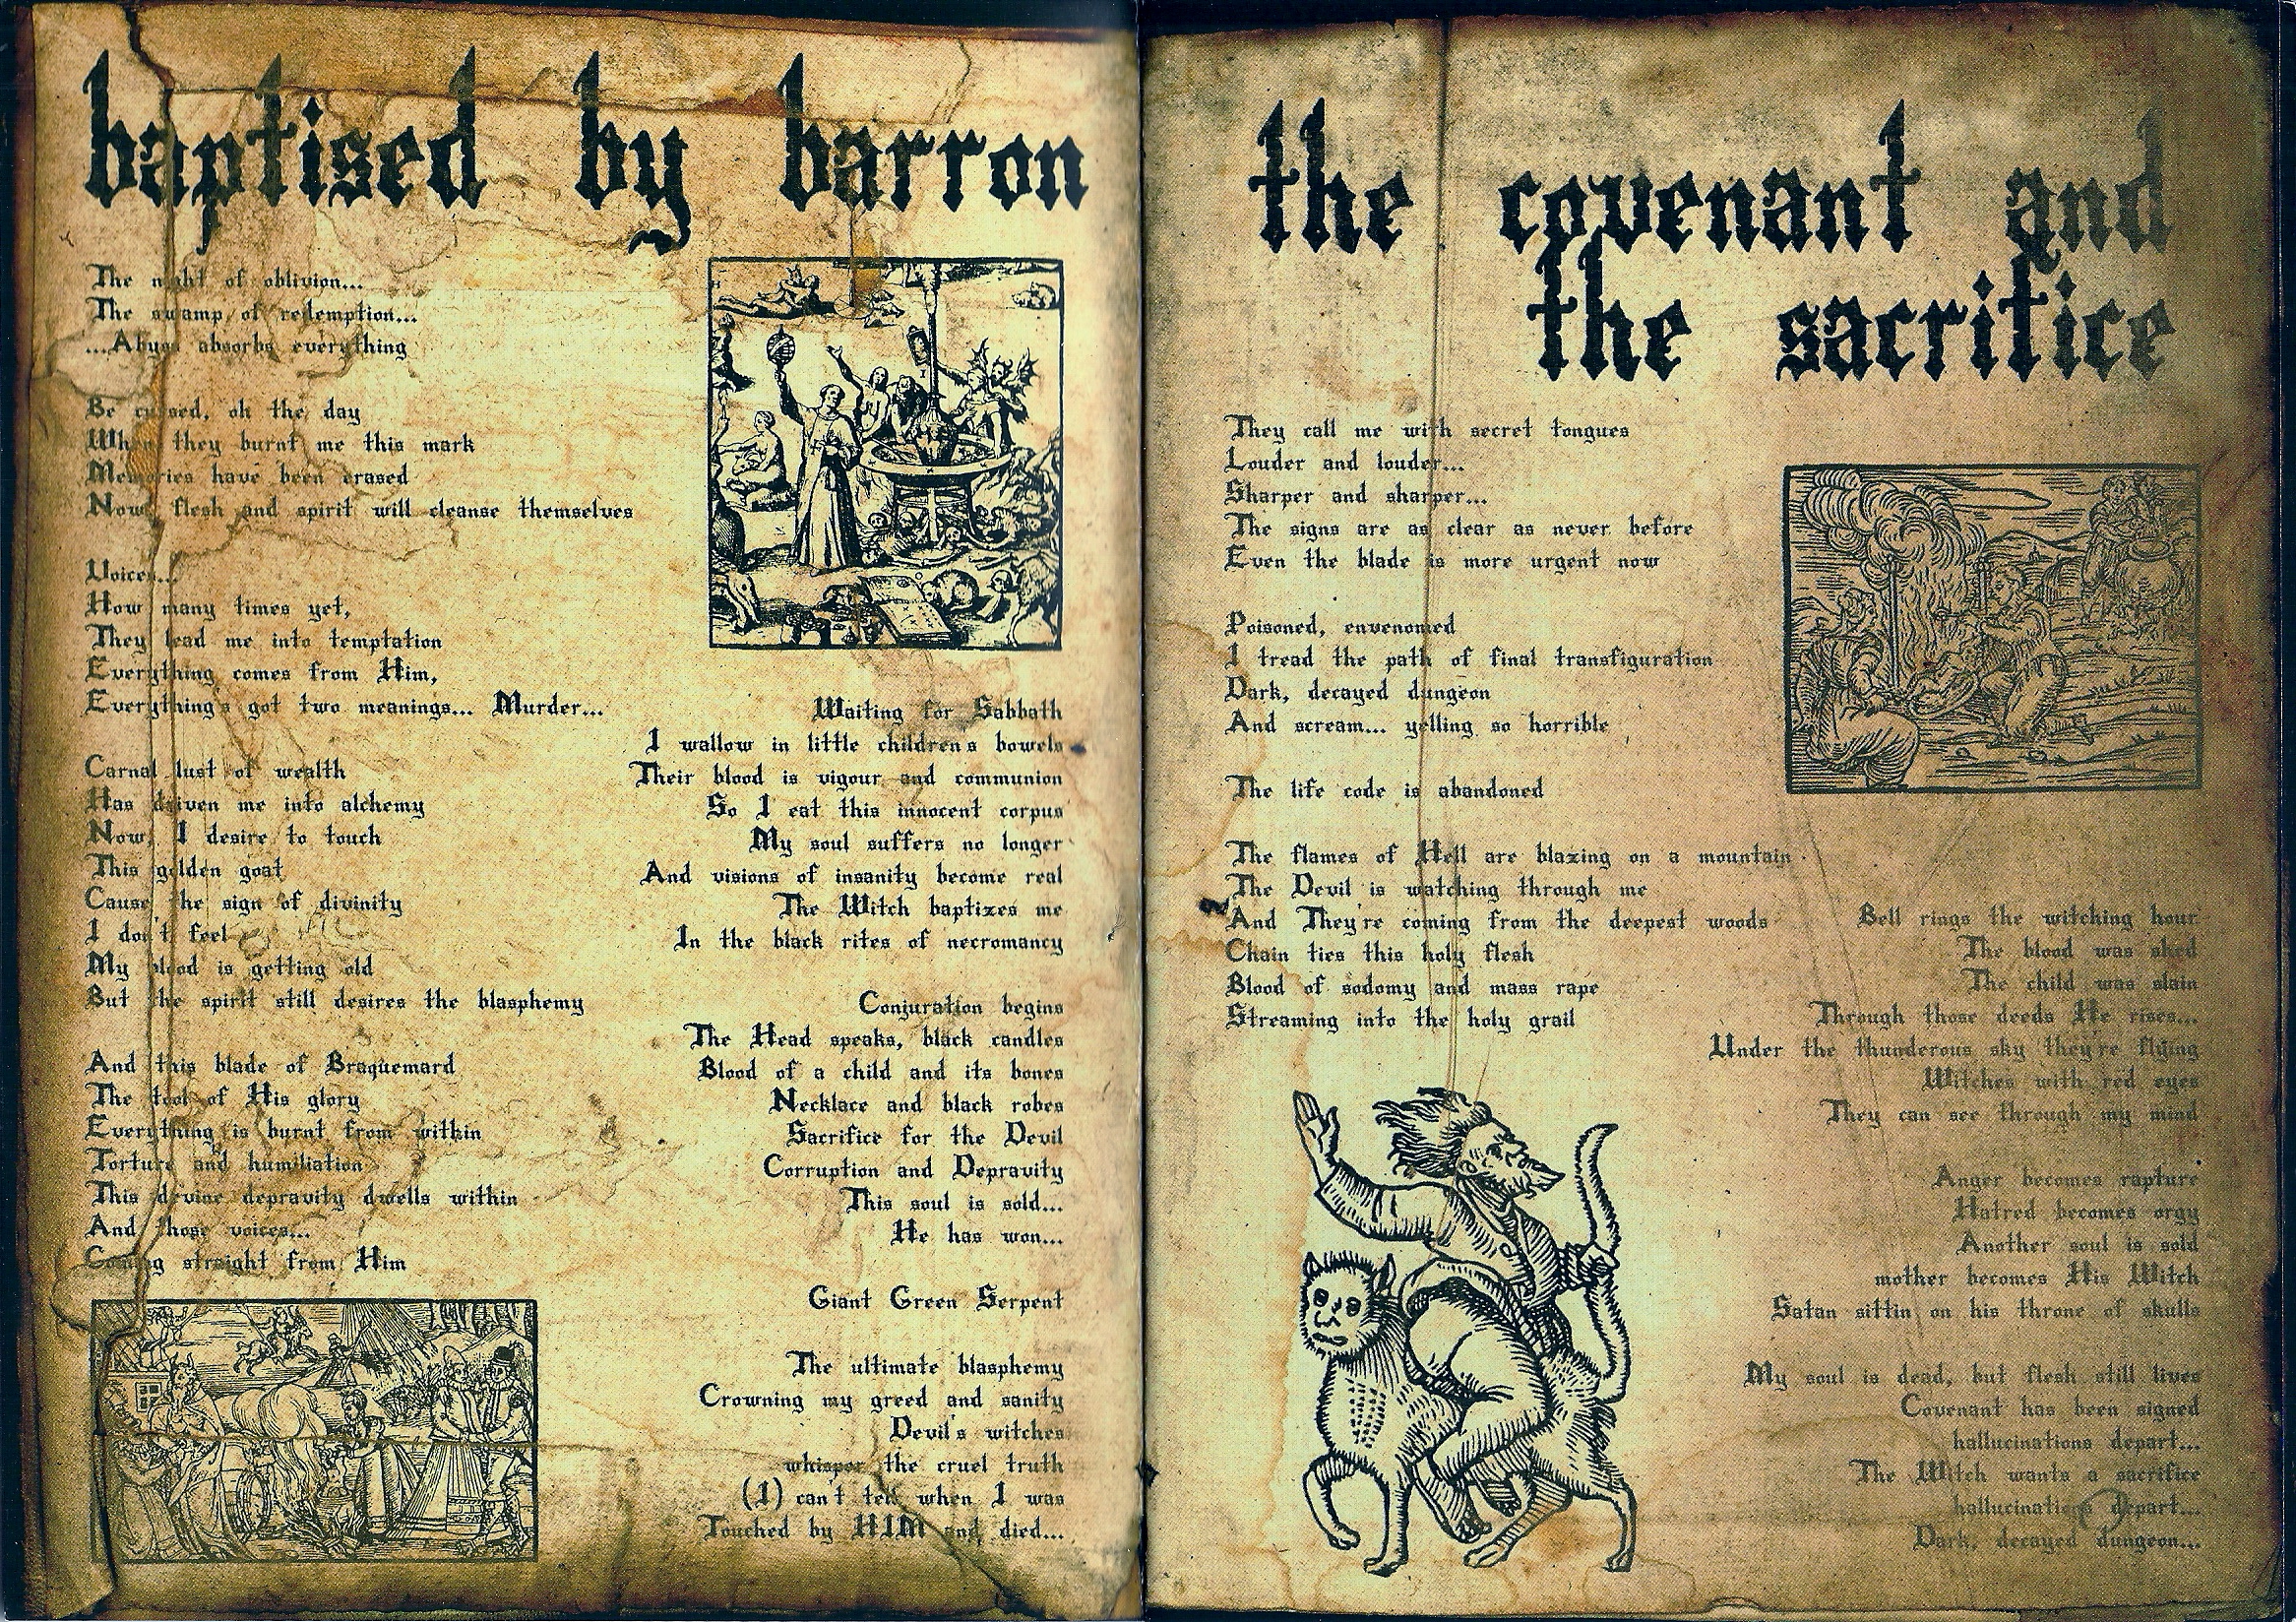 baptised by barron
The night of oblivion...
The swamp of redemption...
...Abyss absorbs everything
Be cursed, oh the day
When they burnt me this mark
Memories have been erased
Now, flesh and spirit will cleanse themselves
Voices...
How many times yet,
They lead me into temptation
Everything comes from Him,
Everything's got two meanings... Murder...
Carnal lust of wealth
Has driven me into alchemy
Now, I desire to touch
This golden goat
Cause the sign of divinity
I don't feel
My blood is getting old
But the spirit still desires the blasphemy
And this blade of Braquemard
The tool of His glory
Everything is burnt from within
Torture and humiliation
This devine depravity dwells within
And those voices...
Coming straight from Him
Waiting for Sabbath
I wallow in little children's bowels
Their blood is vigour and communion
So I eat this innocent corpus
My soul suffers no longer
And visions of insanity become real
The Witch baptizes me
In the black rites of necromancy
Conjuration begins
The Head speaks, black candles
Blood of a child and its bones
Necklace and black robes
Sacrifice for the Devil
Corruption and Depravity
This soul is sold...
He has won...
Giant Green Serpent
The ultimate blasphemy
Crowning my greed and sanity
Devil's witches
whisper the cruel truth
(I) can't tell when I was
Touched by HIM and died...
the covenant and
the sacrifice
They call me with secret tongues
Louder and louder...
Sharper and sharper...
The signs are as clear as never before
Even the blade is more urgent now
Poisoned, envenomed
I tread the path of final transfiguration
Dark, decayed dungeon
And scream... yelling so horrible
The life code is abandoned
The flames of Hell are blazing on a mountain
The Devil is watching through me
And They're coming from the deepest woods
Chain ties this holy flesh
Blood of sodomy and mass rape
Streaming into the holy grail
Bell rings the witching hour
The blood was shed
The child was slain
Through those deeds He rises...
Under the thunderous sky they're flying
Witches with red eyes
They can see through my mind
Anger becomes rapture
Hatred becomes orgy
Another soul is sold
mother becomes His Witch
Satan sittin on his throne of skulls
My soul is dead, but flesh still lives
Covenant has been signed
hallucinations depart...
The Witch wants a sacrifice
hallucinations depart...
Dark, decayed dungeon...